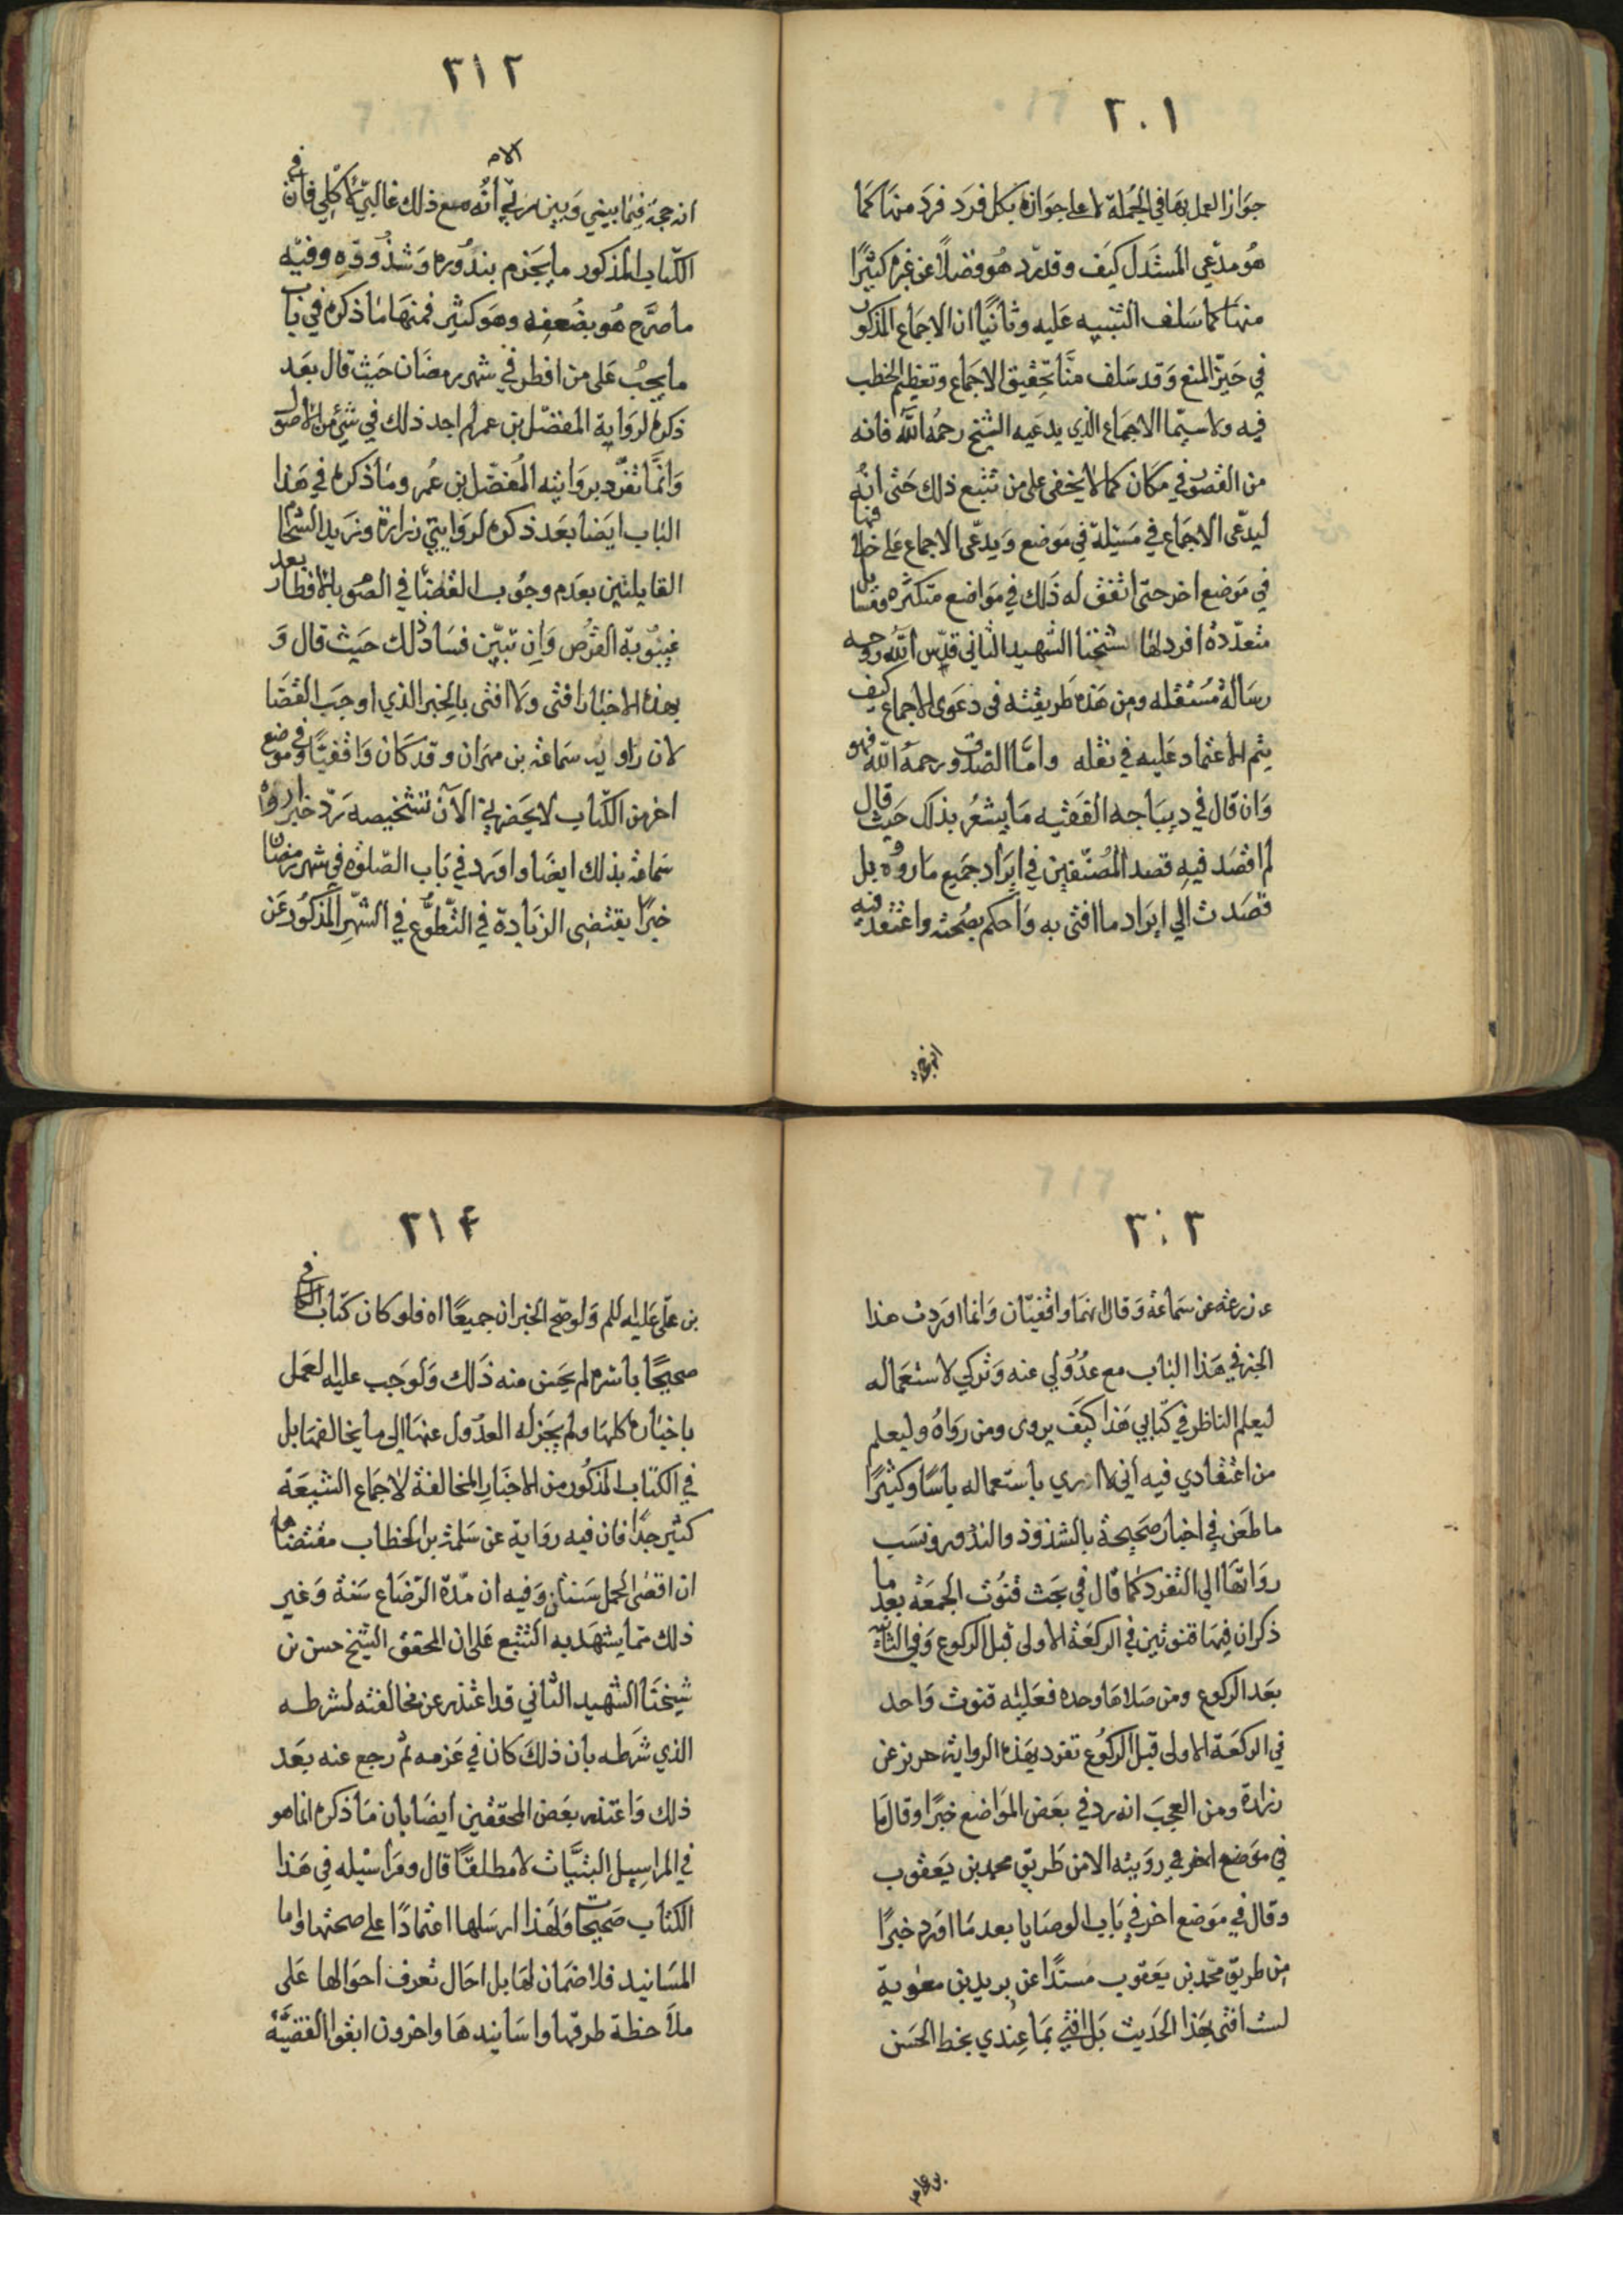 ٢٠١
جوازا لعمل بها في الجملة لا على جوازه بكل فرد فرد منها كما
هو مدعي المستدل كيف وقد رد هو فضلا عن غيره كثيرا
منها كما سلف التنبيه عليه وثانيا ان الاجماع المذكور
في حيز المنع وقد سلف منا تحقيق الاجماع وتعظيم الخطب
فيه ولا سيما الاجماع الذي يدعيه الشيخ رحمه الله فانه
من القصور في مكان كما لا يخفى على من تتبع ذلك حتى انه
ليدعى الاجماع في مسئلة في موضع ويدعى الاجماع على خلافها
في موضع اخر حتى اتفق له ذلك في مواضع متكثره ومسايل
متعددة افرد لها شيخنا الشهيد الثاني قدس الله روحه
رسالة مستقله ومن هذه طريقته في دعوى الاجماع كيف
يتم الاعتماد عليه في نقله واما الصدوق رحمه الله فهو
وان قال في ديباجه الفقيه ما يشعر بذلك حيث قال
لم اقصد فيه قصد المصنفين في ايراد جميع ما رووه بل
قصدت الي ايراد ما افتى به واحكم بصحته واعتقد فيه
انه حجة
٣١٢
انه حجة فيما بيني وبين ربي الا انه مع ذلك غالبي لا كلي فان في
الكتاب المذكور ما يجزم بندوره وشذوذه وفيه
ما صرح هو بضعفه وهو كثير فمنها ما ذكره في باب
ما يجب على من افطر في شهر رمضان حيث قال بعد
ذكره لرواية المفضل بن عمر لم اجد ذلك في شئ من الاصول
وانما تفرد بروايته المفضل بن عمر وما ذكره في هذا
الباب ايضا بعد ذكره لروايتي زرارة وزيد الشحام
القايلتين بعدم وجوب القضا في الصوم بالافطار بعد
غيبوبة القرص وان تبين فساد ذلك حيث قال و
بهذه الاخبار افتى ولا افتى بالخبر الذي اوجب القضا
لان راويه سماعه بن مهران وقد كان واقفيا وفي موضع
اخر من الكتاب لا يحضرني الآن تشخيصه رد خبرا رواه
سماعه بذلك ايضا واورد في باب الصلوه في شهر رمضان
خبرا يقتضى الزيادة في التطوع في الشهر المذكور عن
٣٠٣
عن زرعه عن سماعة وقال انهما واقفيان وانما اوردت هذا
الخبر في هذا الباب مع عدولي عنه وتركي لاستعماله
ليعلم الناظر في كتابي هذا كيف يروى ومن رواه وليعلم
من اعتقادي فيه أني لا ارى باستعماله باسا وكثيرا
ما طعن في اخبار صحيحة بالشذوذ والندور ونسب
رواتها الي التفرد كما قال في بحث قنوت الجمعة بعد ما
ذكر ان فيها قنوتين في الركعة الاولى قبل الركوع وفي الثانيه
بعد الركوع ومن صلاها وحده فعليه قنوت واحد
في الركعة الاولى قبل الركوع تفرد بهذه الرواية حريز عن
زرارة ومن العجب انه رد في بعض المواضع خبرا وقال ما
في موضع اخر رويته الا من طريق محمد بن يعقوب
وقال في موضع اخر في باب الوصايا بعد ما اورد خبرا
من طريق محمد بن يعقوب مسندا عن بريد بن معوية
لست افتى بهذا الحديث بل افتي بما عندي بخط الحسن
بن على
٣١٤
بن على عليه السلم ولو صح الخبران جميعا اه فلو كان كتاب الكافي
صحيحا باسره لم يحسن منه ذلك ولوجب عليه العمل
باخباره كلها ولم يجز له العدول عنها الى ما يخالفها بل
في الكتاب المذكور من الاخبار المخالفة لاجماع الشيعة
كثير جدا فان فيه رواية عن سلمة بن الخطاب مقتضاها
ان اقصى الحمل سنتان وفيه ان مدة الرضاع سنة وغير
ذلك مما يشهد به التتبع على ان المحقق الشيخ حسن بن
شيخنا الشهيد الثاني قد اعتذر عن مخالفته لشرطه
الذي شرطه بان ذلك كان في عزمه ثم رجع عنه بعد
ذلك واعتذر بعض المحققين ايضا بان ما ذكره انما هو
في المراسيل البتيات لا مطلقا قال ومراسيله في هذا
الكتاب صحيحات ولهذا ارسلها اعتمادا على صحتها واما
المسانيد فلا ضمان لها بل احال تعرف احوالها على
ملاحظة طرقها واسانيدها واخرون ابقوا القضية